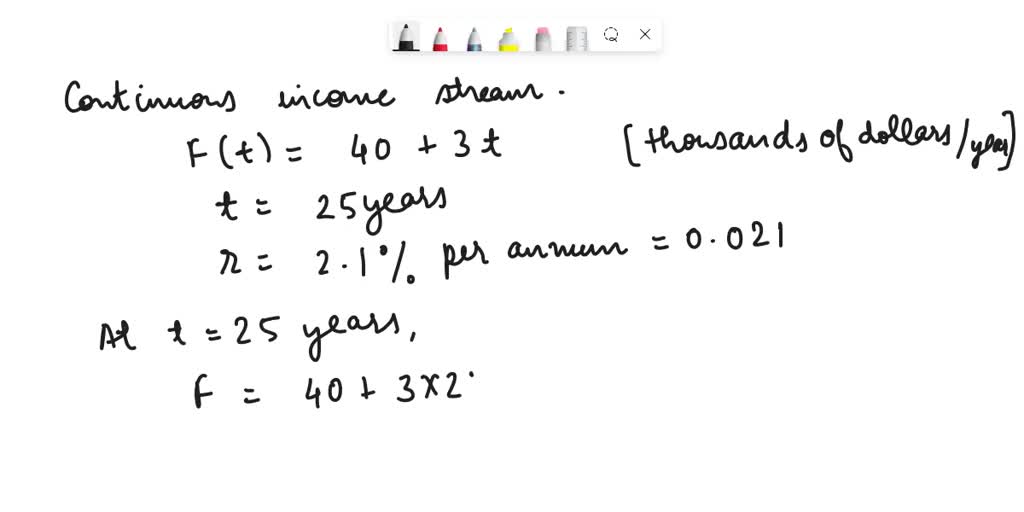 Continuous income stream.
F(t) = 40 + 3t [thousands of dollars/year]
t = 25 years
r = 2.1% per annum = 0.021
At t = 25 years,
F = 40 + 3×2